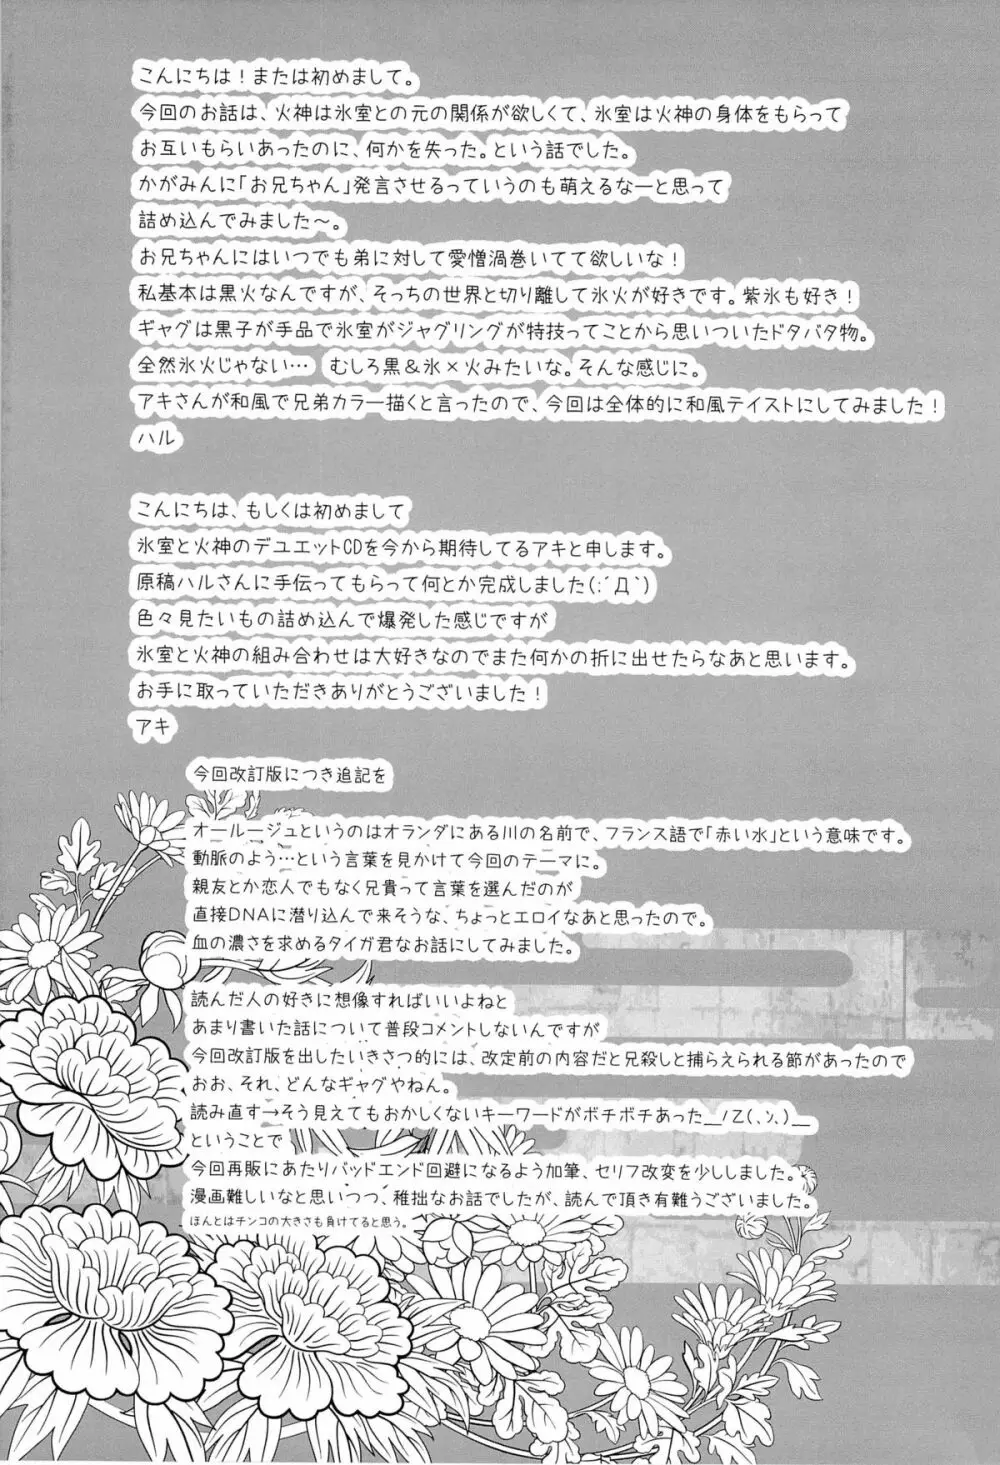 こんにちは！または初めまして。
今回のお話は、火神は氷室との元の関係が欲しくて、氷室は火神の身体をもらって
お互いもらいあったのに、何かを失った。という話でした。
かがみんに「お兄ちゃん」発言させるっていうのも萌えるなーと思って
詰め込んでみました～。
お兄ちゃんにはいつでも弟に対して愛憎渦巻いてて欲しいな！
私基本は黒火なんですが、そっちの世界と切り離して氷火が好きです。紫氷も好き！
ギャグは黒子が手品で氷室がジャグリングが特技ってことから思いついたドタバタ物。
全然氷火じゃない…　むしろ黒＆氷×火みたいな。そんな感じに。
アキさんが和風で兄弟カラー描くと言ったので、今回は全体的に和風テイストにしてみました！
ハル
こんにちは、もしくは初めまして
氷室と火神のデュエットCDを今から期待してるアキと申します。
原稿ハルさんに手伝ってもらって何とか完成しました(;´Д`)
色々見たいもの詰め込んで爆発した感じですが
氷室と火神の組み合わせは大好きなのでまた何かの折に出せたらなあと思います。
お手に取っていただきありがとうございました！
アキ
今回改訂版につき追記を
オールージュというのはオランダにある川の名前で、フランス語で「赤い水」という意味です。
動脈のよう…という言葉を見かけて今回のテーマに。
親友とか恋人でもなく兄貴って言葉を選んだのが
直接DNAに潜り込んで来そうな、ちょっとエロイなあと思ったので。
血の濃さを求めるタイガ君なお話にしてみました。
読んだ人の好きに想像すればいいよねと
あまり書いた話について普段コメントしないんですが
今回改訂版を出したいきさつ的には、改定前の内容だと兄殺しと捕らえられる節があったので
おお、それ、どんなギャグやねん。
読み直す→そう見えてもおかしくないキーワードがボチボチあった__ﾉZ(､ﾝ､)__
ということで
今回再販にあたりバッドエンド回避になるよう加筆、セリフ改変を少ししました。
漫画難しいなと思いつつ、稚拙なお話でしたが、読んで頂き有難うございました。
ほんとはチンコの大きさも負けてると思う。